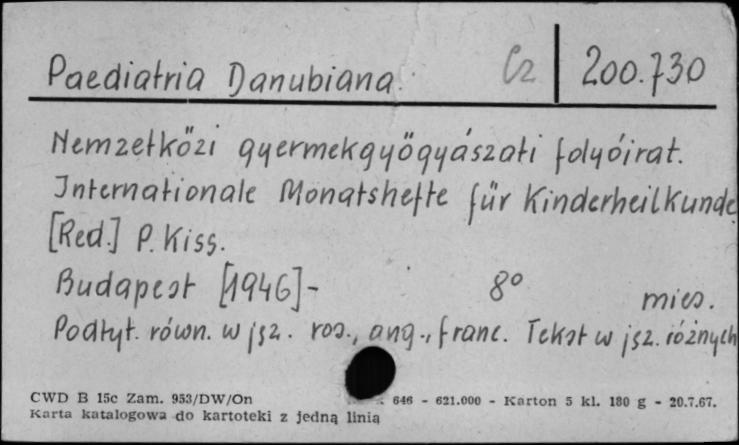 Paediatria Danubiana. Cz 200.730
Nemzetközi gyermekgyögyászati folyóirat.
Internationale Monatshefte für Kinderheilkunde
[Red.] P. Kiss.
Budapest [1946]- 8° mies.
Podtyt. równ. w jęz. ros., ang., franc. Tekst w jęz. różnych
CWD B 15c Zam. 953/DW/On 646 - 621.000 - Karton 5 kl. 180 g - 20.7.67.
Karta katalogowa do kartoteki z jedną linią